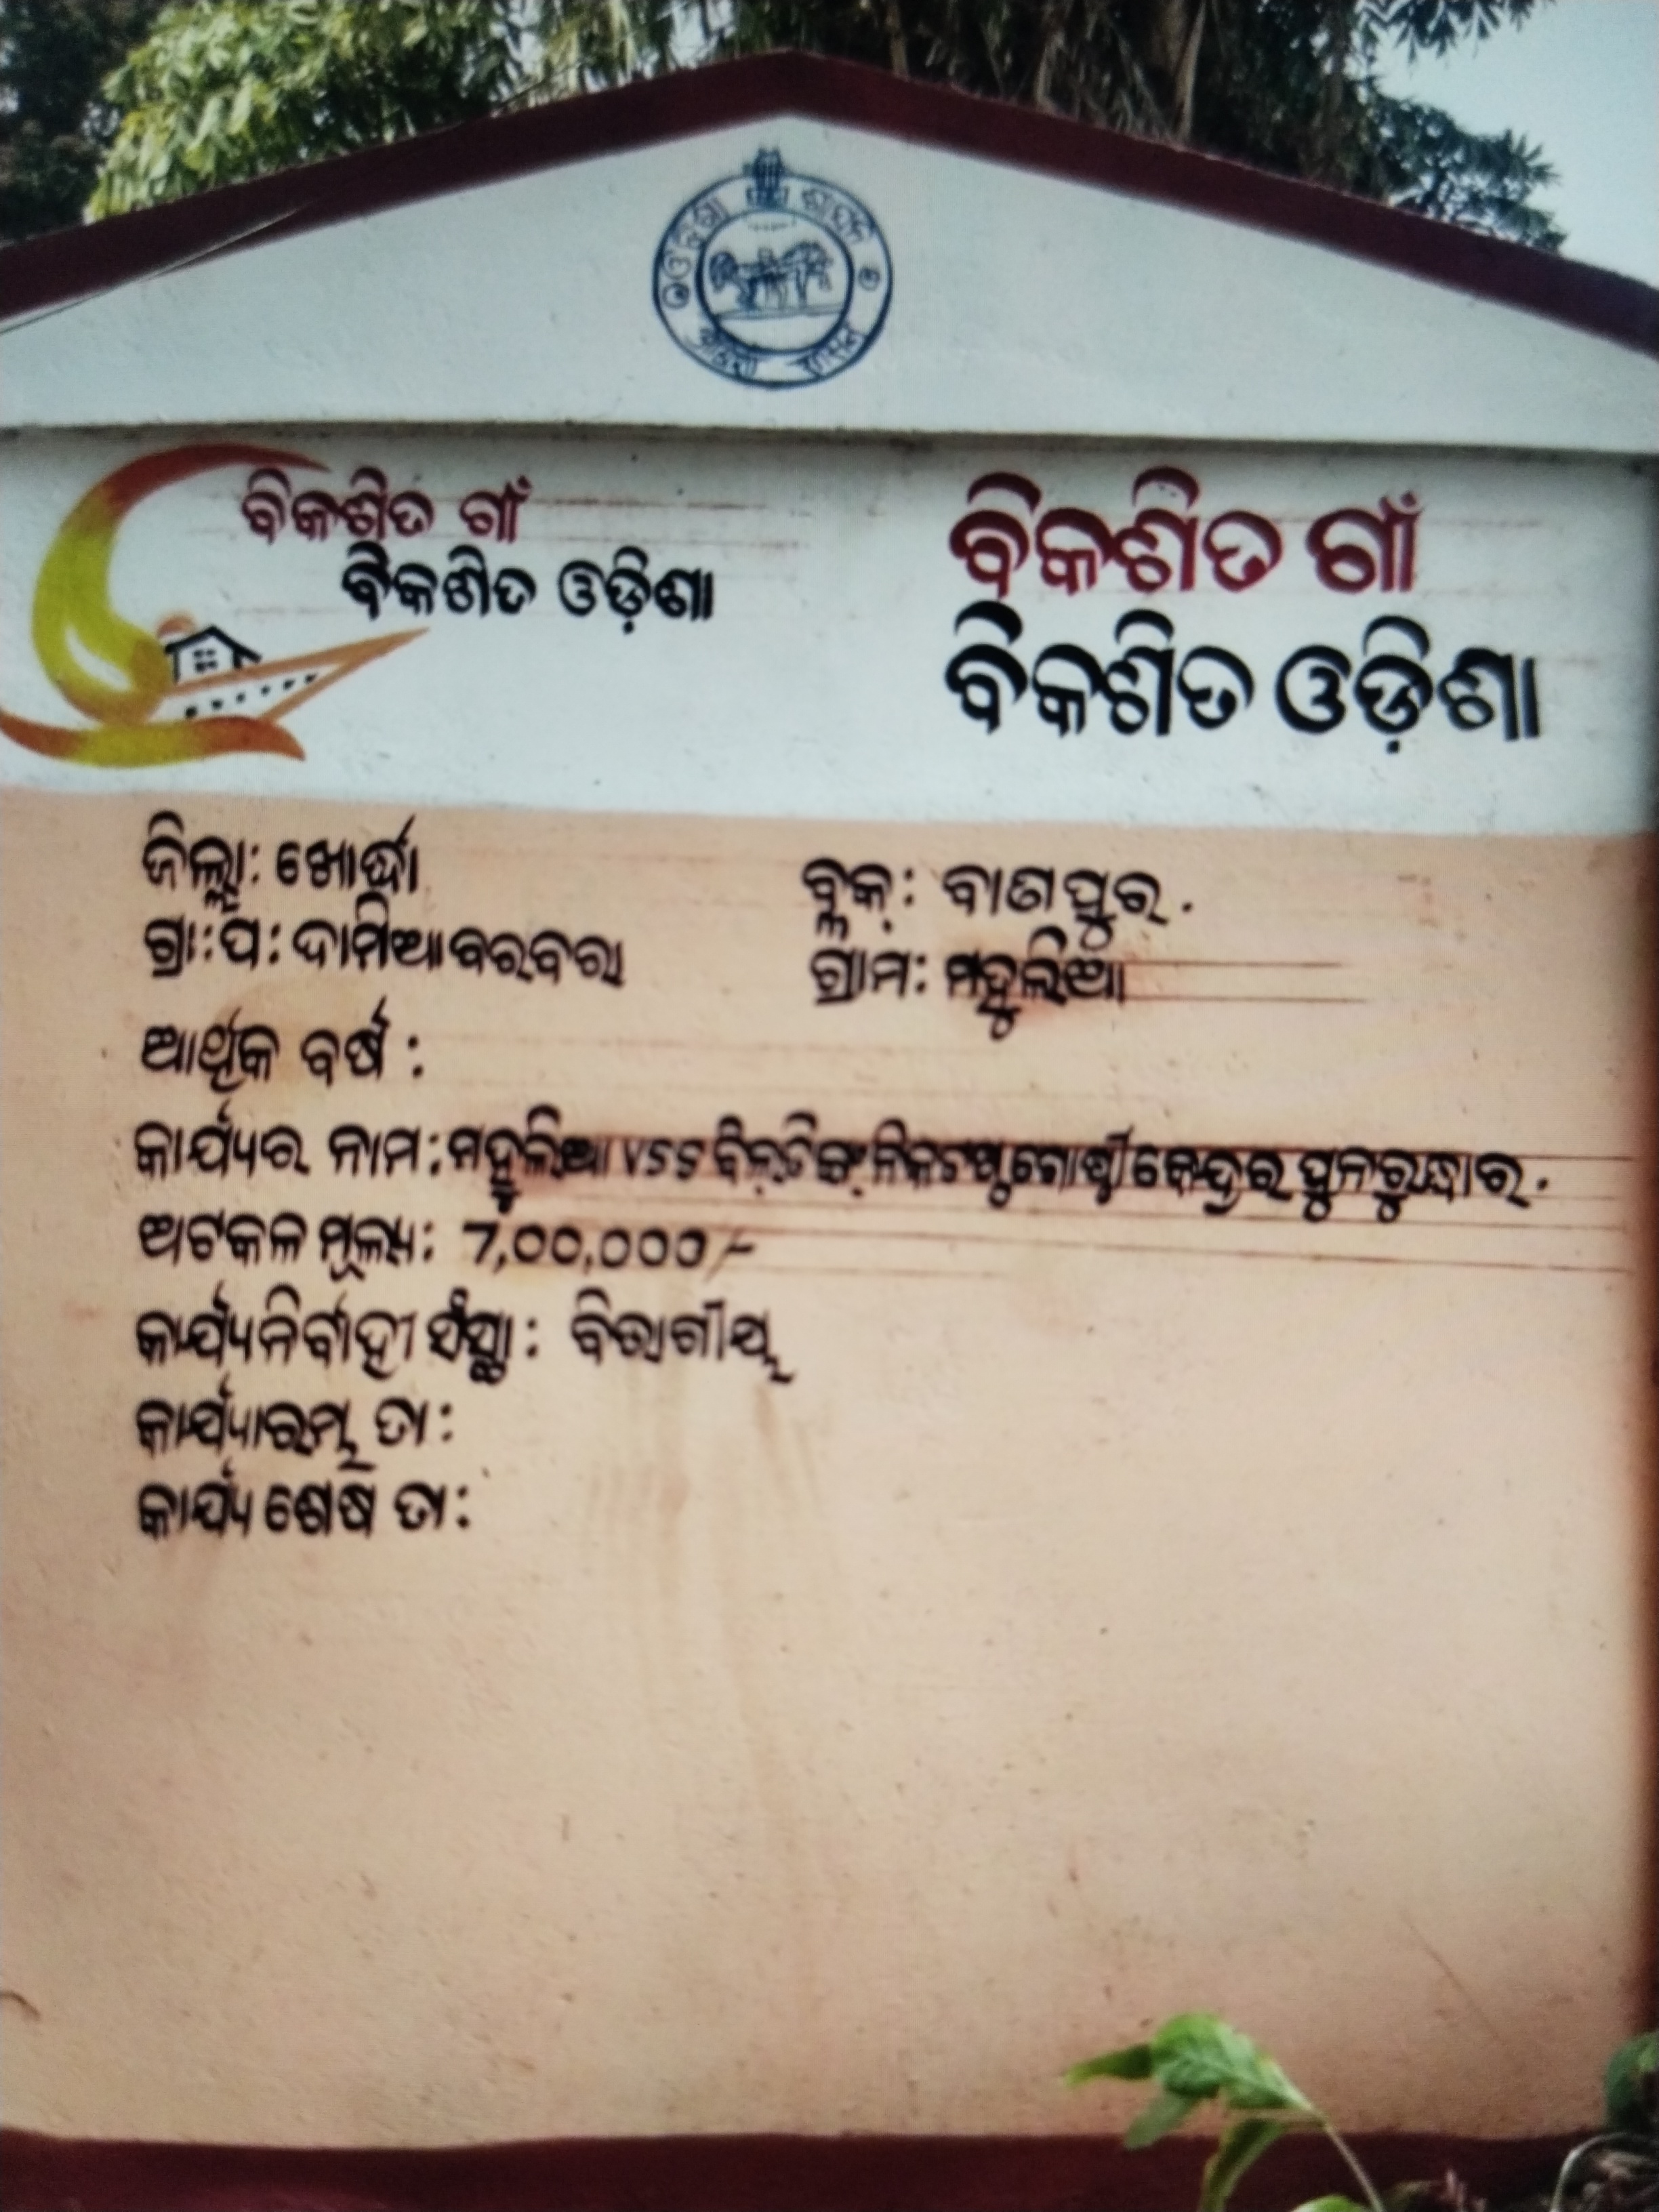 ଓଡ଼ିଶା ଶାସନ
ବିକଶିତ ଗାଁ
ବିକଶିତ ଓଡ଼ିଶା
ବିକଶିତ ଗାଁ
ବିକଶିତ ଓଡ଼ିଶା
ଜିଲ୍ଲା: ଖୋର୍ଦ୍ଧା
ବ୍ଲକ୍: ବାଣପୁର.
ଗ୍ରା:ପ: ଦାମିଆବରବରା
ଗ୍ରାମ: ମହୁଲିଆ
ଆର୍ଥିକ ବର୍ଷ :
କାର୍ଯ୍ୟର ନାମ: ମହୁଲିଆ VSS ବିଲ୍ଡିଙ୍ଗ୍ ନିକଟସ୍ଥ ଗୋଷ୍ଠୀ କେନ୍ଦ୍ରର ପୁନରୁଦ୍ଧାର.
ଅଟକଳ ମୂଲ୍ୟ: 7,00,000/-
କାର୍ଯ୍ୟନିର୍ବାହୀ ସଂସ୍ଥା: ବିଭାଗୀୟ
କାର୍ଯ୍ୟାରମ୍ଭ ତା:
କାର୍ଯ୍ୟ ଶେଷ ତା: